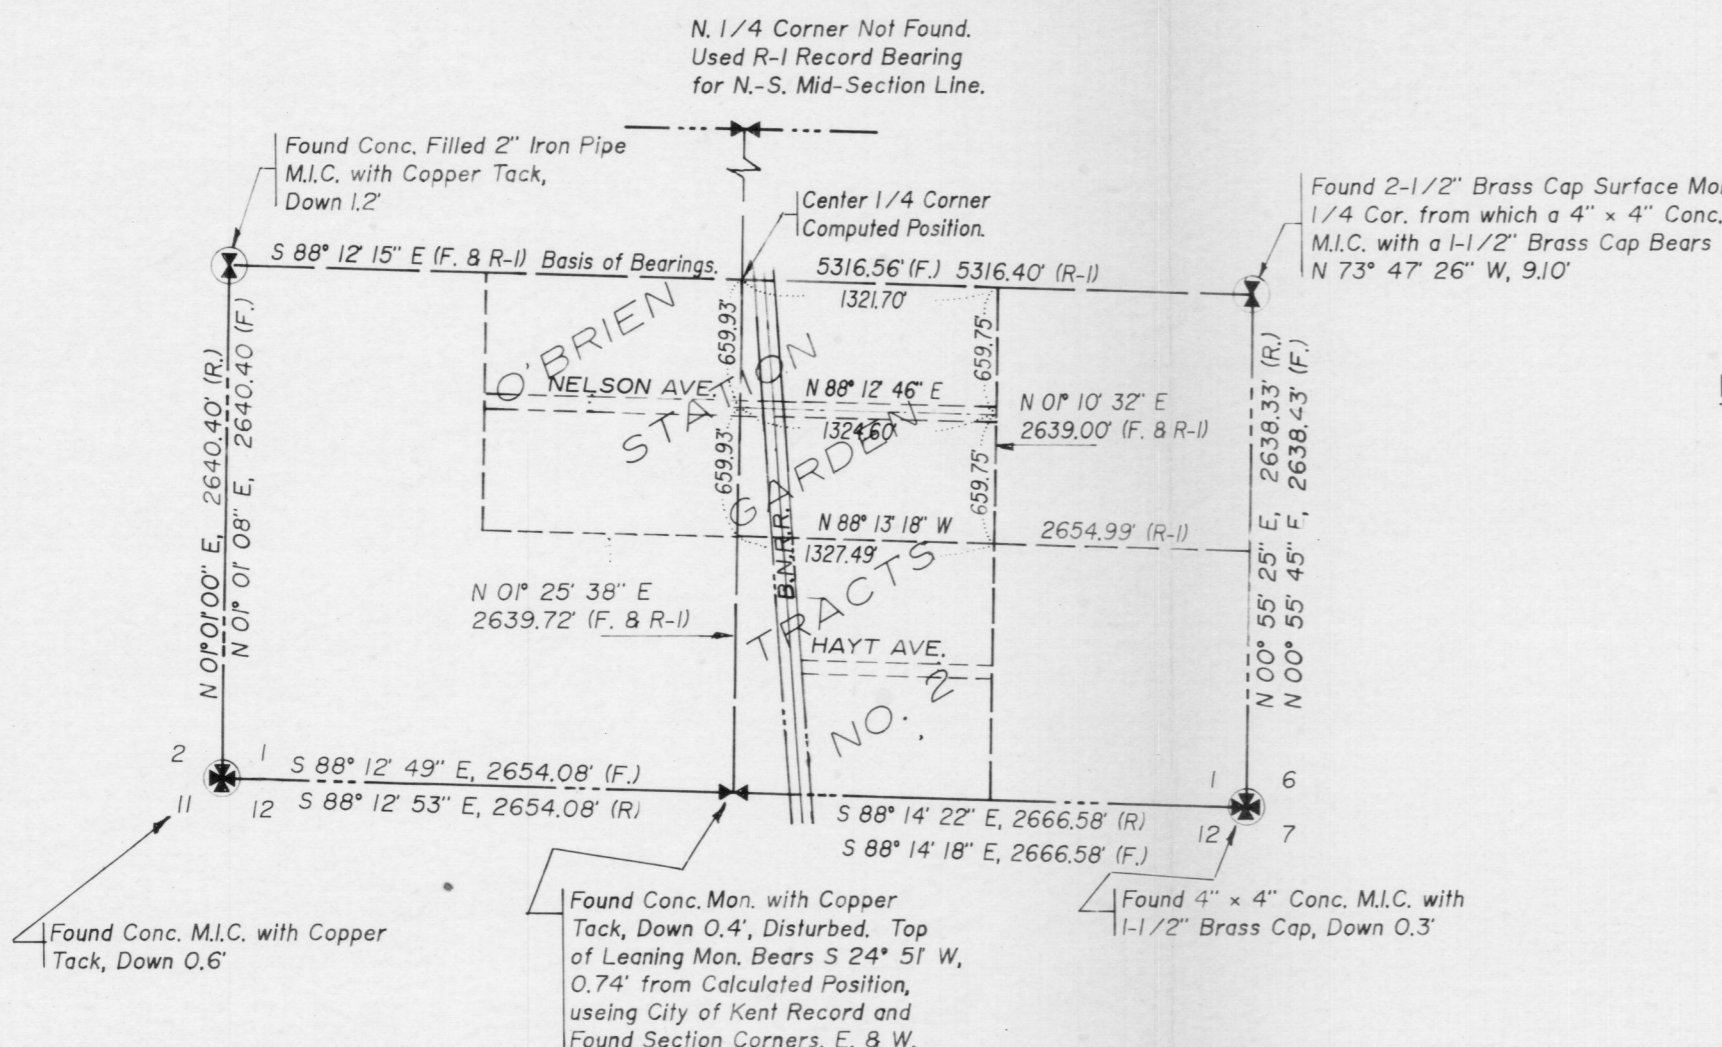 N. 1/4 Corner Not Found.
Used R-1 Record Bearing
for N.-S. Mid-Section Line.
Found Conc. Filled 2" Iron Pipe
M.I.C. with Copper Tack,
Down 1.2'
Center 1/4 Corner
Computed Position.
Found 2-1/2" Brass Cap Surface
1/4 Cor. from which a 4" × 4" Conc.
M.I.C. with a 1-1/2" Brass Cap Bears
N 73° 47' 26" W, 9.10'
S 88° 12' 15" E (F. & R-1) Basis of Bearings.
5316.56' (F.) 5316.40' (R-1)
1321.70'
659.93'
659.75'
O'BRIEN
STATION
GARDEN
TRACTS
NO. 2
NELSON AVE.
N 88° 12' 46" E
1324.60'
N 01° 10' 32" E
2639.00' (F. & R-1)
659.93'
659.75'
N 88° 13' 18" W
1327.49'
2654.99' (R-1)
B.N.R.R.
N 01° 25' 38" E
2639.72' (F. & R-1)
HAYT AVE.
N 01°01'00" E, 2640.40' (R.)
N 01° 01' 08" E, 2640.40 (F.)
N 00° 55' 25" E, 2638.33' (R.)
N 00° 55' 45" E, 2638.43' (F.)
2 1
11 12
S 88° 12' 49" E, 2654.08' (F.)
S 88° 12' 53" E, 2654.08' (R)
S 88° 14' 22" E, 2666.58' (R)
S 88° 14' 18" E, 2666.58' (F.)
1 6
12 7
Found Conc. M.I.C. with Copper
Tack, Down 0.6'
Found Conc. Mon. with Copper
Tack, Down 0.4', Disturbed. Top
of Leaning Mon. Bears S 24° 51' W,
0.74' from Calculated Position,
useing City of Kent Record and
Found Section Corners, E. & W.
Found 4" × 4" Conc. M.I.C. with
1-1/2" Brass Cap, Down 0.3'